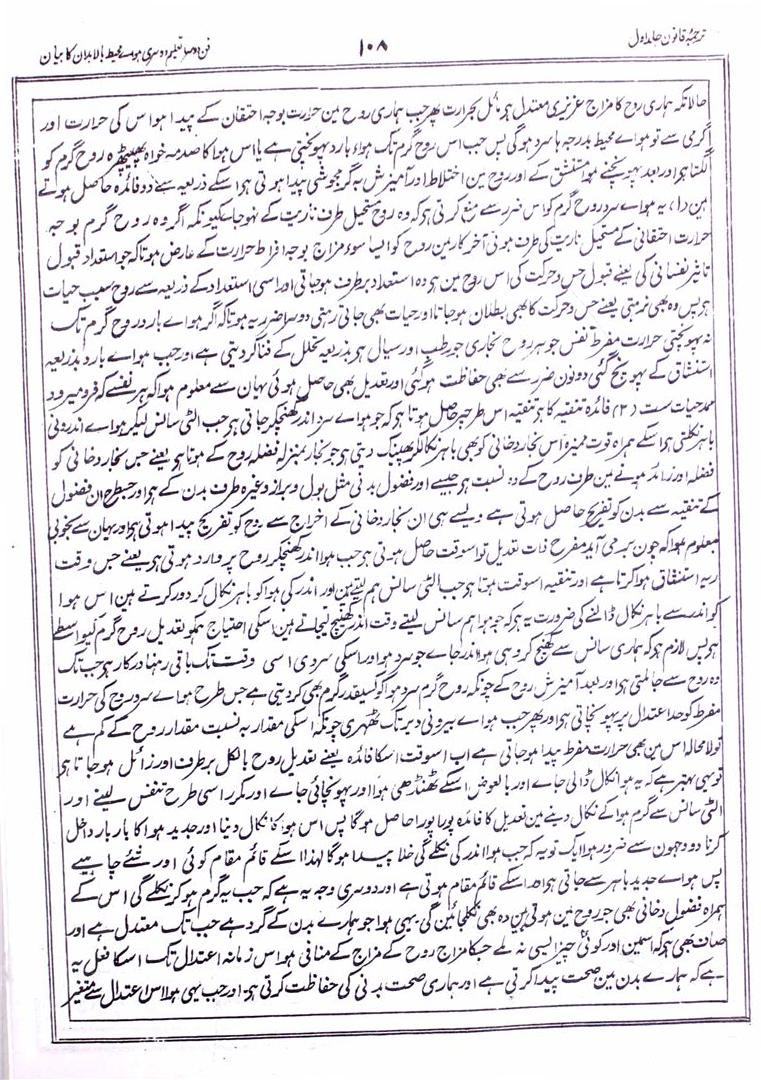 ترجمۂ قانون جلد اول
۱۰۸
فن دوسرا تعلیم دوسری ہوا سے محیط بالابدان کا بیان
حالانکہ ہماری روح کا مزاج عزیزی معتدل ہر مائل بحرارت پھر جب ہماری روح مین حرارت بوجہ احتقان کے پیدا ہو اس کی حرارت اور
گرمی سے تو ہواے محیط بدرجہا سرد ہوگی پس جب اس روح گرم تک ہواء بارد پہونچتی ہے یا اس ہوا کا صدمہ خواہ پھیپھڑہ روح گرم کو
لگتا ہر اور بعد پہونچنے ہوا مستنشق کے اور روح مین اختلاط اور آمیزش بہ گرمجوشی پیدا ہوتی ہر اسکے ذریعہ سے دو فائدہ حاصل ہوتے
ہین (۱) یہ ہواے سرد روح گرم کو اس ضرر سے منع کرتی ہر کہ وہ روح مستحیل طرف ناریت کے نہو جاے کیونکہ اگر وہ روح گرم بوجہ
حرارت احتقانی کے مستحیل ناریت کی طرف ہوتی آخر کار مین روح کو ایسا سوء مزاج بوجہ افراط حرارت کے عارض ہوتا کہ جو استعداد قبول
تاثیر نفسانی کی یعنے قبول حس و حرکت کی اس روح مین ہر وہ استعداد برطرف ہو جاتی اور اسی استعداد کے ذریعہ سے روح سبب حیات
ہر پس وہ بھی نرہتی یعنے حس و حرکت کا بھی بطلان ہو جاتا اور حیات بھی جاتی رہتی دوسرا ضرر یہ ہوتا کہ اگر ہواے بارد روح گرم تک
نہ پہونچتی حرارت مفرط نفس جوہر روح بخاری جو رطب اور سیال ہر بذریعہ تحلل کے فنا کر دیتی ہے اور جب ہواے بارد بذریعہ
استنشاق کے پہونچ گئی دونون ضرر سے بھی حفاظت ہوگئی اور تعدیل بھی حاصل ہوئی یہان سے معلوم ہوا کہ ہر نفسے کہ فرو میرود
ممد حیات ست (۲) فائدہ تنقیہ کا ہر تنقیہ اس طرحپر حاصل ہوتا ہر کہ جو ہواے سرد اندر کھنچکر جاتی ہر جب الٹی سانس لیکر ہواے اندرونی
باہر نکلتی ہر اسکے ہمراہ قوت ممیزہ اس بخار دخانی کو بھی باہر نکالکر پھینک دیتی ہر جو بخار بمنزلہ فضلہ روح کے ہوتا ہر یعنے جس بخار دخانی کو
فضلہ اور زائد ہونے مین طرف روح کے وہ نسبت ہر جیسے اور فضول بدنی مثل بول و براز وغیرہ طرف بدن کے ہر اور جسطرح ان فضول
کے تنقیہ سے بدن کو تفریح حاصل ہوتی ہے ویسے ہی ان بخار دخانی کے اخراج سے روح کو تفریح پیدا ہوتی ہر اور یہان سے بخوبی
معلوم ہوا کہ چون برمی آید مفرح ذات تعدیل تو اسوقت حاصل ہوتی ہر جب ہوا اندر کھنچکر روح پر وارد ہوتی ہر یعنے جس وقت
ریہ استنشاق ہوا کرتا ہے اور تنقیہ اسوقت ہوتا ہر جب الٹی سانس ہم لیتے ہین اور اندر کی ہوا کو باہر نکال کر دور کرتے ہین اس ہوا
کو اندر سے باہر نکال ڈالنے کی ضرورت یہ ہر کہ جو ہوا ہم سانس لیتے وقت اندر کھینچ لیجاتے ہین اسکی احتیاج ہمکو تعدیل روح گرم کیواسطے
ہر پس لازم ہر کہ ہماری سانس سے کھنچ کر وہی ہوا اندر جاے جو سرد ہو اور اسکی سردی اسی وقت تک باقی رہنا درکار ہر جب تک
وہ روح سے جا ملتی ہر اور بعد آمیزش روح کے چونکہ روح گرم سرد ہوا کو کسیقدر گرم بھی کر دیتی ہے جس طرح ہواے سرد روح کی حرارت
مفرط کو حد اعتدال پر پہونچاتی ہر اور پھر جب ہواے بیرونی دیر تک ٹھہری چونکہ اسکی مقدار بہ نسبت مقدار روح کے کم ہے
تو لا محالہ اس مین بھی حرارت مفرط پیدا ہو جاتی ہے اب اسوقت اسکا فائدہ یعنے تعدیل روح بالکل برطرف اور زائل ہو جاتا ہر
تو یہی بہتر ہے کہ یہ ہوا نکال ڈالی جاے اور بالعوض اسکے ٹھنڈھی ہوا اور پہونچائی جاے اور مکرر اسی طرح تنفس لینے اور
الٹی سانس سے گرم ہوا کے نکال دینے مین تعدیل کا فائدہ پورا پورا حاصل ہوگا پس اس ہوا کا نکال دینا اور جدید ہوا کا بار بار داخل
کرنا دو وجہون سے ضرور ہوا ایک تو یہ کہ جب ہوا اندر کی نکلے گی خلا پیدا ہوگا لہذا اسکے قائم مقام کوئی اور شئے چاہیے
پس ہواے جدید باہر سے جاتی ہر اور اسکے قائم مقام ہوتی ہے اور دوسری وجہ یہ ہے کہ جب یہ گرم ہو کر نکلے گی اس کے
ہمراہ فضول دخانی بھی جو روح مین ہوتی ہین وہ بھی نکلجائین گی یہی ہوا جو ہمارے بدن کے گرد ہے جب تک معتدل ہے اور
صاف بھی ہر کہ اسمین اور کوئی چیز ایسی نہ ملے جسکا مزاج روح کے مزاج کے منافی ہو اس زمانہ اعتدال تک اسکا فعل یہ
ہے کہ ہمارے بدن مین صحت پیدا کرتی ہے اور ہماری صحت بدنی کی حفاظت کرتی ہر اور جب یہی ہوا اس اعتدال سے متغیر